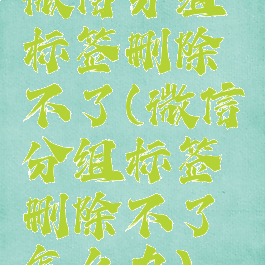 微信分组
标签删除
不了(微信
分组标签
删除不了
怎么办)